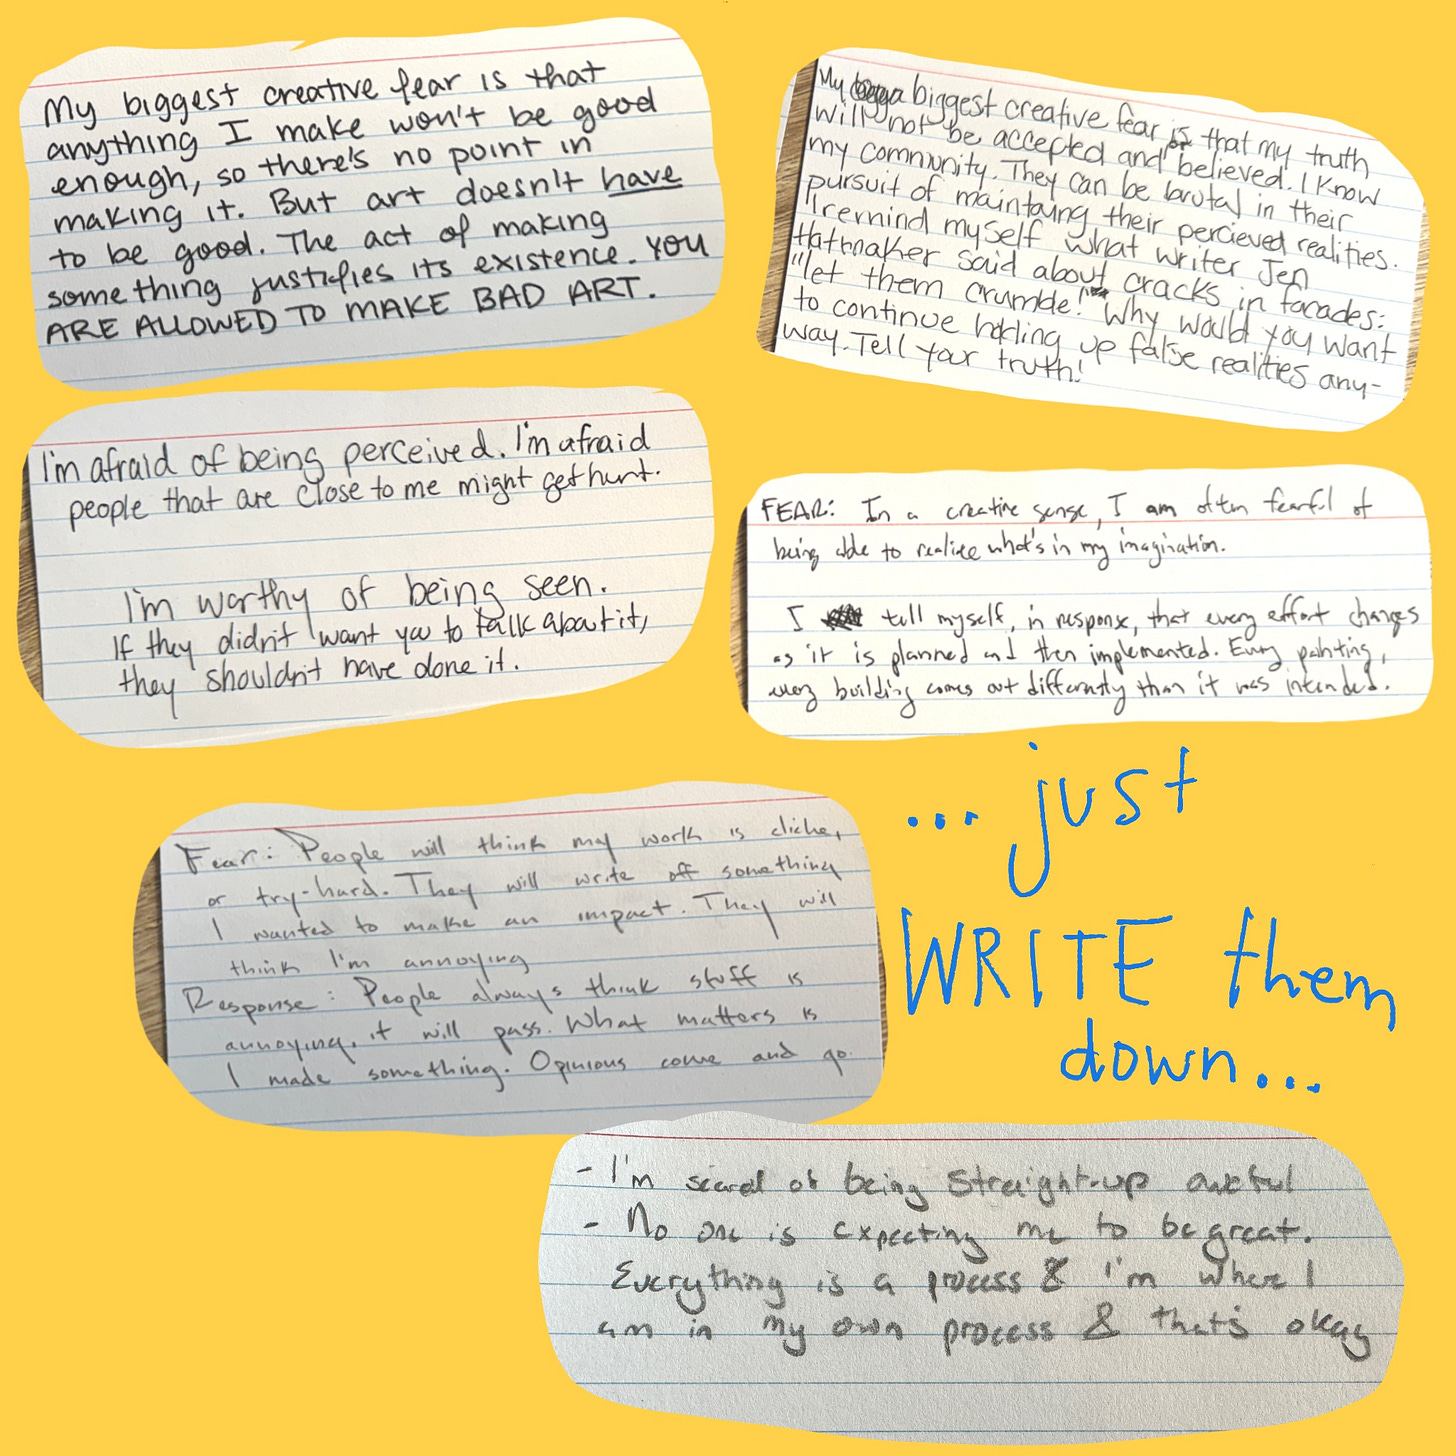 My biggest creative fear is that
anything I make won't be good
enough, so there's no point in
making it. But art doesn't have
to be good. The act of making
something justifies its existence. YOU
ARE ALLOWED TO MAKE BAD ART.
My biggest creative fear is that my truth
will not be accepted and or believed. I know
my commionity. They can be brutal in their
pursuit of maintaing their percieved realities.
I remind myself what writer Jen
Hatmaker said about cracks in facades:
"let them crumble!" Why would you want
to continue holding up false realities any-
way. Tell your truth!
I'm afraid of being perceived. I'm afraid
people that are close to me might get hurt.
I'm worthy of being seen.
If they didn't want you to talk about it,
they shouldn't have done it.
FEAR: In a creative sense, I am often fearful of
being able to realize what's in my imagination.
I tell myself, in response, that every effort changes
as it is planned and then implemented. Every painting,
every building comes out differently than it was intended.
... just
WRITE them
down...
Fear: People will think my work is cliche,
or try-hard. They will write off something
I wanted to make an impact. They will
think I'm annoying
Response: People always think stuff is
annoying, it will pass. What matters is
I made something. Opinions come and go.
- I'm scared of being straight-up aweful
- No one is expecting me to be great.
Everything is a process & I'm where I
am in my own process & that's okay